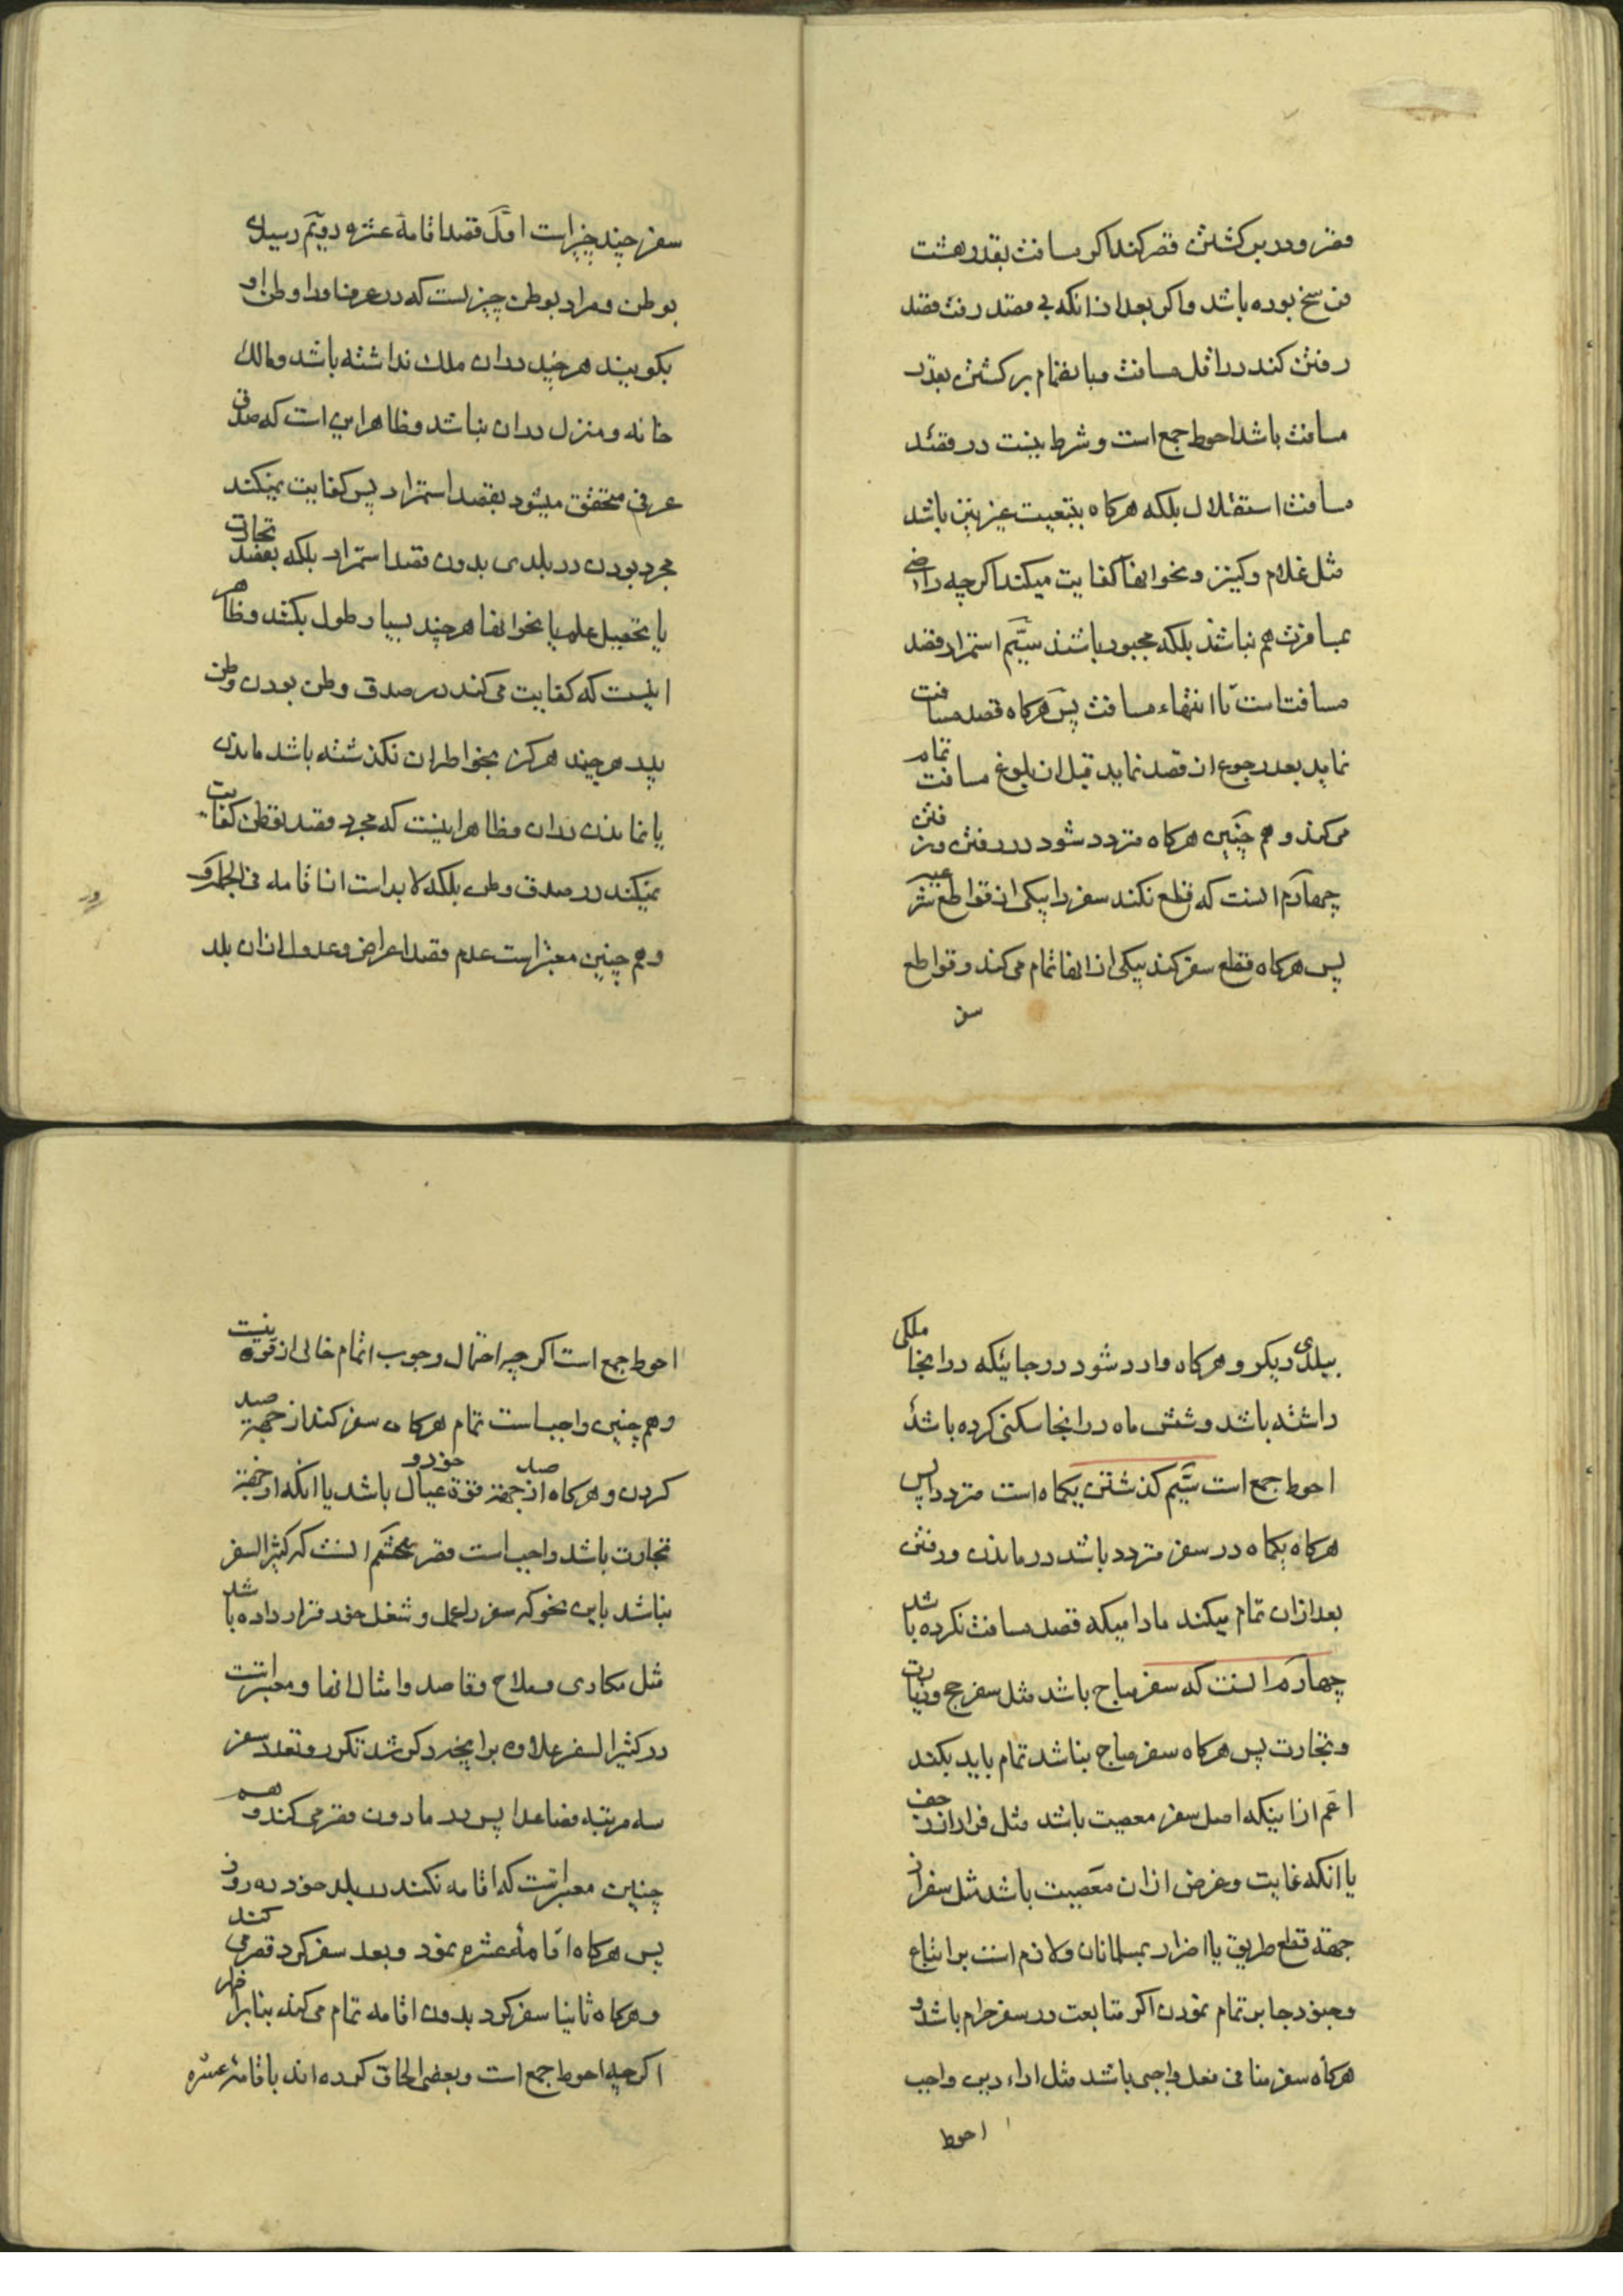 قصر و در بر کشتن قصر کند اکر مسافت بقدر هشت
فرسخ بوده باشد و اکر بعد از انکه بی مقصد رفت قصد
رفتن کند در اقل مسافت و بانضمام بر کشتن بقدر
مسافت باشد احوط جمع است و شرط نیست در قصد
مسافت استقلال بلکه هرکاه بتبعیت غیر نیز باشد
مثل غلام و کنیز و نحو انها کفایت میکند اکر چه راضی
بمسافرت هم نباشند بلکه مجبور باشند سیّم استمرار قصد
مسافت است تا انتهاء مسافت پس هرکاه قصد مسافت
نماید بعد رجوع از قصد نماید قبل از بلوغ مسافت تمام
می کند و هم چنین هرکاه متردد شود در رفتن و نرفتن
چهارم انست که قطع نکند سفر را بیکی از قواطع شرعیه
پس هرکاه قطع سفر کند بیکی از انها تمام می کند و قواطع
سفر
سفر چند چیز است اوّل قصد اقامهٔ عشره دویّم رسیدن
بوطن و مراد بوطن چیزیست که در عرف اورا وطن او
بکویند هر چند در ان ملک نداشته باشد و مالک
خانه و منزل در ان نباشد و ظاهر این است که صدق
عرفی متحقق میشود بقصد استمرار پس کفایت نمیکند
مجرد بودن در بلدی بدون قصد استمرار بلکه بقصد تجارت
یا تحصیل علم یا نحو انها هر چند بسیار طول بکشد و ظاهر
اینست که کفایت می کند در صدق وطن بودن وطن
پدر هر چند هرکز بخواطر ان نکذشته باشد ماندن
یا نماندن در ان و ظاهر اینست که مجرد قصد توطن کفایت
نمیکند در صدق وطن بلکه لا بد است از اقامه فی الجمله و
و هم چنین معتبر است عدم قصد اعراض و عدول از ان بلد
ببلدی دیکر و هرکاه وارد شود در جائیکه در انجا ملکی
داشته باشد و شش ماه در انجا سکنی کرده باشد
احوط جمع است سیّم کذشتن یکماه است متردد پس
هرکاه یکماه در سفر متردد باشد در ماندن و رفتن
بعد از ان تمام میکند مادامیکه قصد مسافت نکرده باشد
چهارم انست که سفر مباح باشد مثل سفر حج و زیارت
و تجارت پس هرکاه سفر مباح نباشد تمام باید بکند
اعم از اینکه اصل سفر معصیت باشد مثل فرار از زحف
یا انکه غایت و غرض از ان معصیت باشد مثل سفر از
جههٔ قطع طریق یا اضرار بمسلمانان و لازم است بر اتباع
و جنود جابر تمام نمودن اکر متابعت در سفر حرام باشد و
هرکاه سفر منافی فعل واجبی باشد مثل اداء دین واجب
احوط
احوط جمع است اکر چه احتمال وجوب اتمام خالی از قوة نیست
و هم چنین واجب است تمام هرکاه سفر کند از جههٔ صید
کردن و هرکاه صید از جههٔ قوة خود و عیال باشد یا انکه از جههٔ
تجارت باشد واجب است قصر پنجم انست که کثیر السفر
نباشد باین نحو که سفر را عمل و شغل خود قرار داده باشد
مثل مکاری و ملاح و قاصد و امثال انها و معتبر است
در کثیر السفر علاوه بر انچه ذکر شد تکرر و تعدد سفر
سه مرتبه فصاعدا پس در ما دون قصر می کند و هم
چنین معتبر است که اقامه نکند در بلد خود ده روز
پس هرکاه اقامهٔ عشره نمود و بعد سفر کرد قصر می کند
و هرکاه ثانیا سفر کرد بدون اقامه تمام می کند بنابر اظهر
اکر چه احوط جمع است و بعضی الحاق کرده اند باقامهٔ عشره